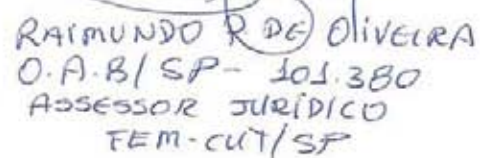 RAIMUNDO R DE OLIVEIRA
O.A.B/SP- 101.380
ASSESSOR JURÍDICO
FEM-CUT/SP